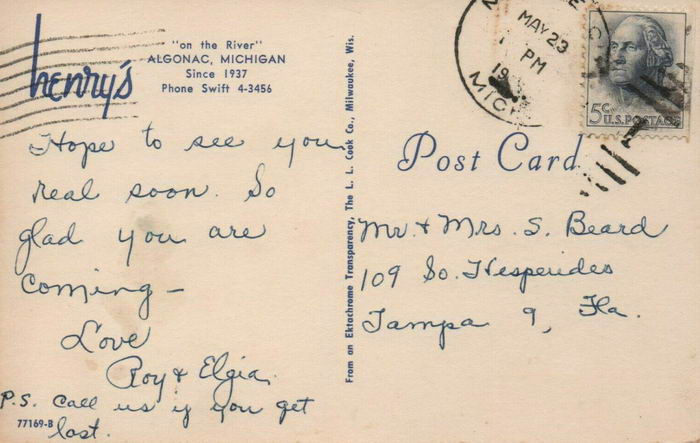 henry's
"on the River"
ALGONAC, MICHIGAN
Since 1937
Phone Swift 4-3456
Hope to see you
real soon. So
glad you are
coming—
Love
Roy & Elgia.
P.S. Call us if you get
lost.
77169-B
From an Ektachrome Transparency, The L. L. Cook Co., Milwaukee, Wis.
MAY 23
PM
19
MICH
5¢
U.S. POSTAGE
Post Card
Mr. & Mrs. S. Beard
109 So. Hesperides
Tampa 9, Fla.